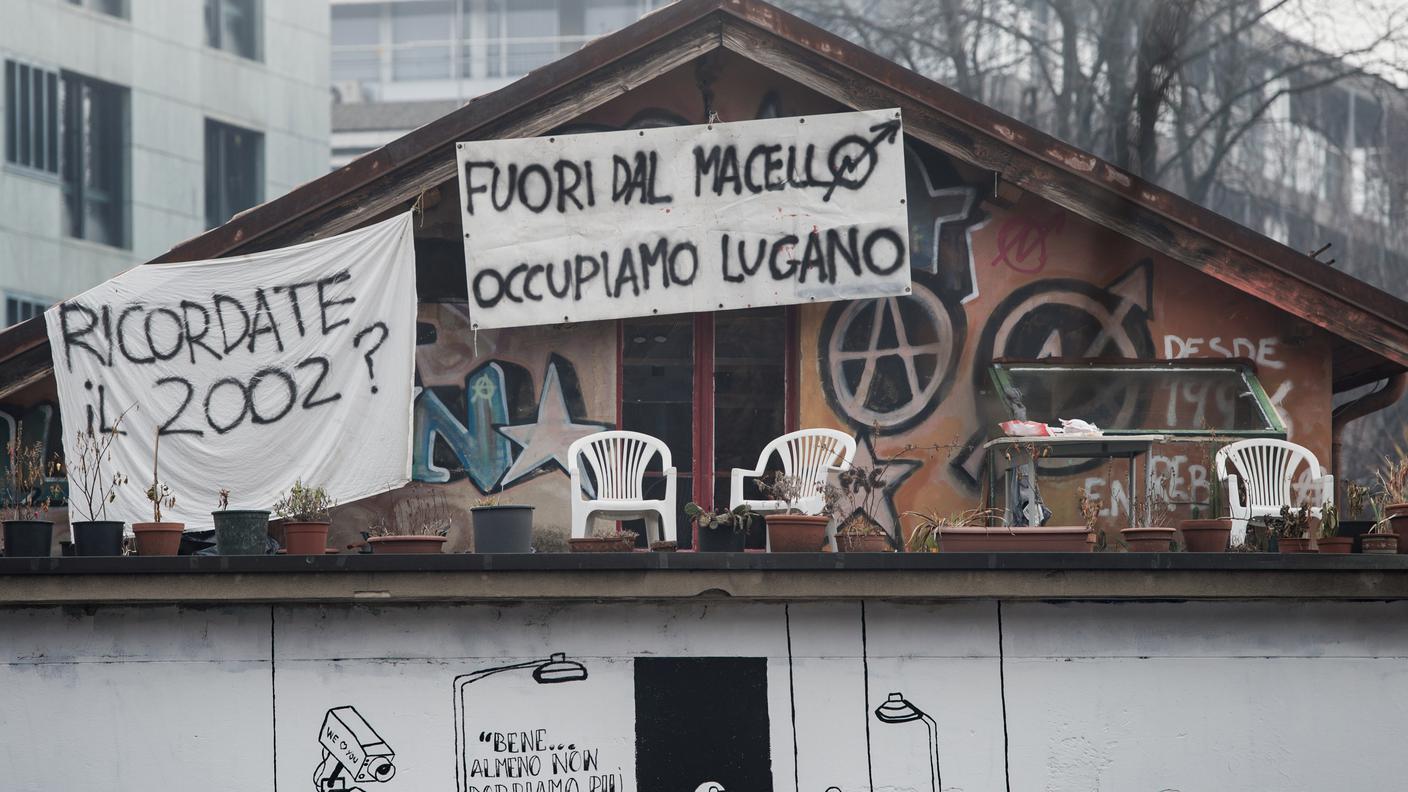 FUORI DAL MACELLO
OCCUPIAMO LUGANO
RICORDATE
iL 2002?
DESDE
EN REB
WE ♡ YOU
"BENE...
ALMENO NON
DOBBIAMO PIÙ